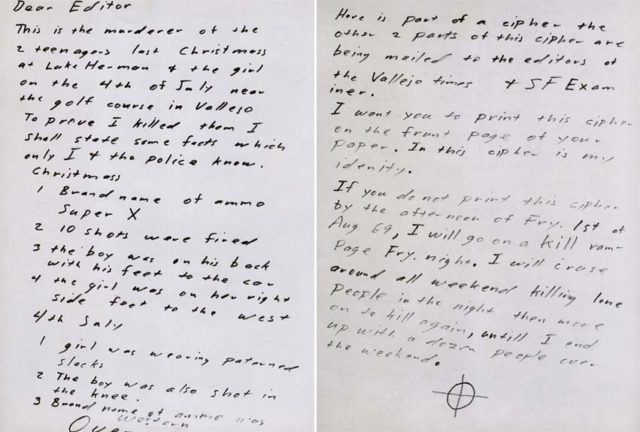 Dear Editor
This is the murderer of the
2 teenagers last Christmass
at Lake Herman & the girl
on the 4th of July near
the golf course in Vallejo
To prove I killed them I
shall state some facts which
only I & the police know.
Christmass
1 Brand name of ammo
Super X
2 10 shots were fired
3 the boy was on his back
with his feet to the car
4 the girl was on her right
side feet to the west
4th July
1 girl was wearing paterned
slacks
2 The boy was also shot in
the knee.
3 Brand name of ammo was
western
Over
Here is part of a cipher the
other 2 parts of this cipher are
being mailed to the editors of
the Vallejo times & SF Exam
iner.
I want you to print this cipher
on the front page of your
paper. In this cipher is my
idenity.
If you do not print this cipher
by the afternoon of Fry. 1st of
Aug 69, I will go on a kill ram-
Page Fry. night. I will cruse
around all weekend killing lone
people in the night then move
on to kill again, untill I end
up with a dozen people over
the weekend.